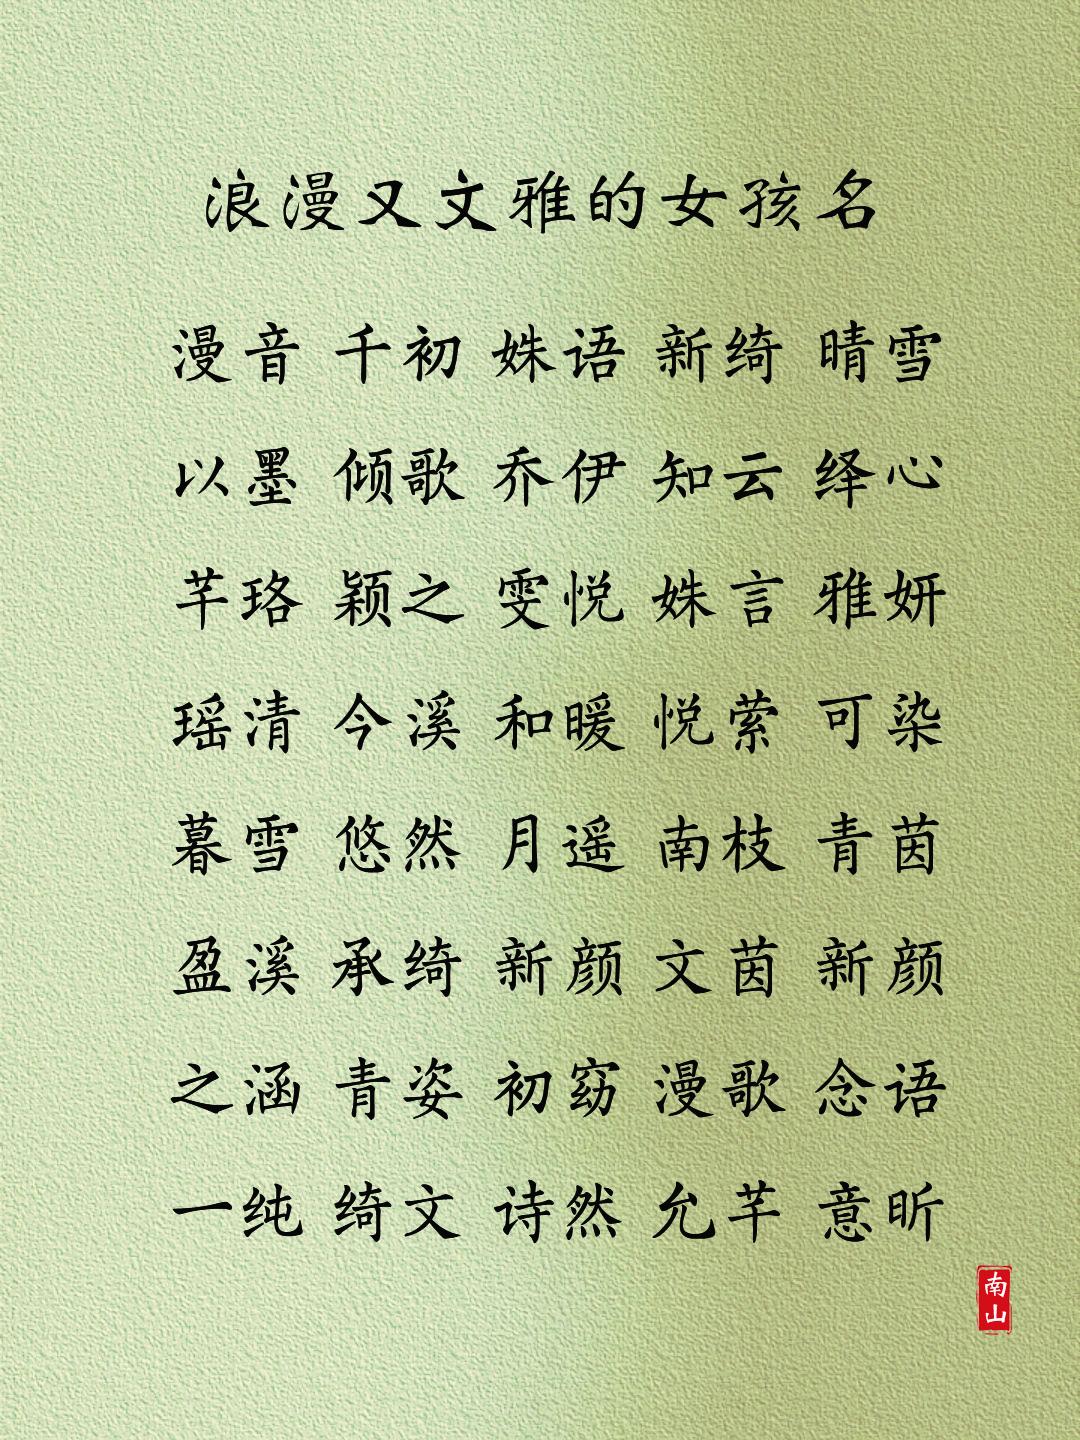 浪漫又文雅的女孩名
漫音 千初 姝语 新绮 晴雪
以墨 倾歌 乔伊 知云 绎心
芊珞 颖之 雯悦 姝言 雅妍
瑶清 今溪 和暖 悦萦 可染
暮雪 悠然 月遥 南枝 青茵
盈溪 承绮 新颜 文茵 新颜
之涵 青姿 初窈 漫歌 念语
一纯 绮文 诗然 允芊 意昕
南山